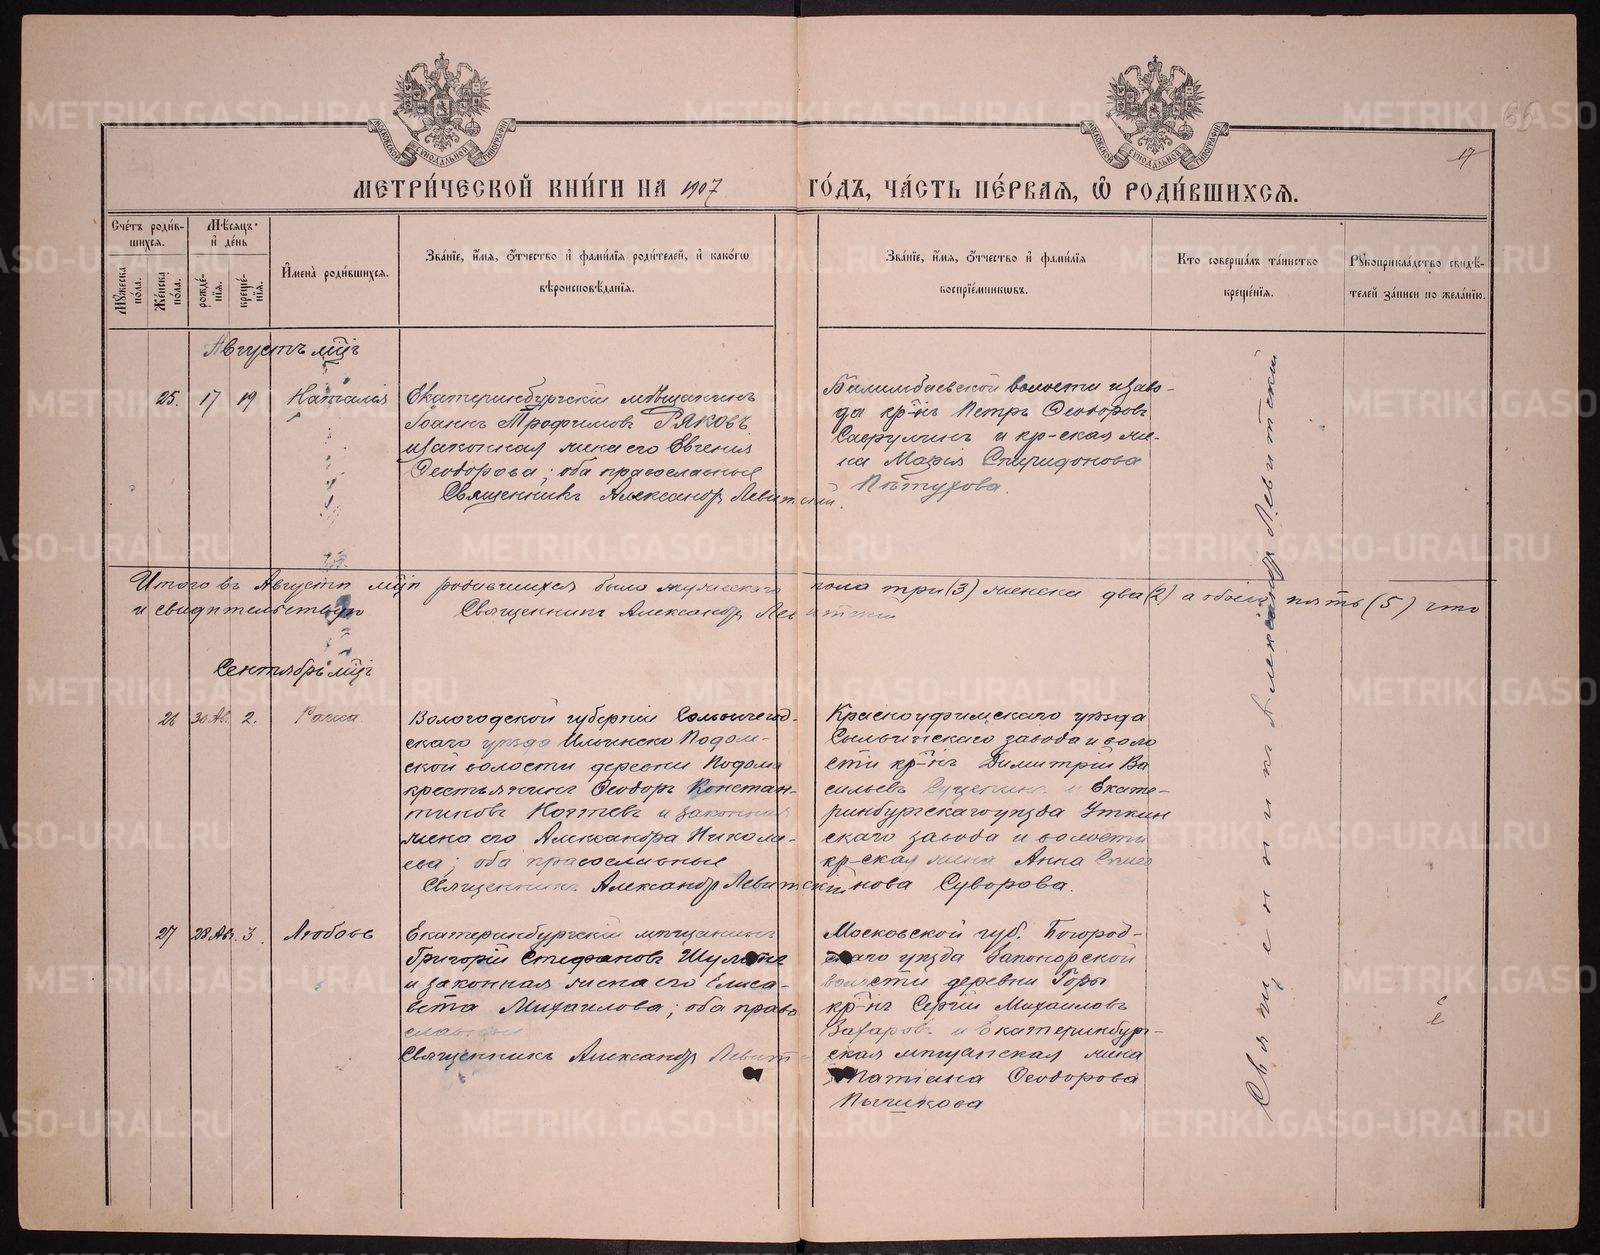 МЕТРИ́ЧЕСКОЙ КНИ́ГИ НА 1907 ГО́ДЪ, ЧА́СТЬ ПЕ́РВАЯ, Ѡ РОДИ́ВШИХСЯ.
65
17
МОСКОВСКОЙ СѴНОДАЛЬНОЙ ТИПОГРАФІИ
МОСКОВСКОЙ СѴНОДАЛЬНОЙ ТИПОГРАФІИ
Сче́тъ роди́в-
шихся.
Му́жеска по́ла.
Же́нска по́ла.
Мѣ́сяцъ
и де́нь
рожде́-
нія.
креще́-
нія.
Имена̀ роди́вшихся.
Зва́ніе, и́мя, о́тчество и фами́лія роди́телей, и како́гѡ
вѣроисповѣ́данія.
Зва́ніе, и́мя, о́тчество и фами́лія
воспріе́мниковъ.
Кто соверша́лъ та́инство
креще́нія.
Рукоприкла́дство свидѣ́-
телей за́писи по жела́нію.
Августъ мц̃ъ
25. 17 19 Наталія
Екатеринбургскій мѣщанинъ
Іоаннъ Трофимовъ Ряковъ
и законная жена его Евгенія
Ѳеодорова; оба православные
Священникъ Александръ Левитскій.
Билимбаевской волости и заво-
да кр-нъ Петръ Ѳеодоровъ
и кр-ская же-
на Марія Спиридонова
Пѣтухова.
Итого въ Августѣ мц̃ѣ родившихся было мужескаго пола три (3) женска два (2) а обоего пять (5) что
и свидѣтельствую Священникъ Александръ Левитскій
Сентябрь мц̃ъ
26 30 Ав. 2. Раиса
Вологодской губерніи Сольвычегод-
скаго уѣзда Ильинско Подом-
ской волости деревни Подома
крестьянинъ Ѳеодоръ Констан-
тиновъ Ногтевъ и законная
жена его Александра Никола-
ева; оба православные
Священникъ Александръ Левитскій
Красноуфимскаго уѣзда
Сылвинскаго завода и воло
сти кр-нъ Димитрій Ва
сильевъ и Екате-
ринбургскаго уѣзда Уткин
скаго завода и волости
кр-ская жена Анна
нова Суворова.
27 28 Ав. 3. Любовь
Екатеринбургскій мѣщанинъ
Григорій Стефановъ
и законная жена его Елиса-
вета Михаилова; оба право
славные
Священникъ Александръ Левит
Московской губ. Богород-
скаго уѣзда Запонорской
волости деревни Горы
кр-нъ Сергій Михаиловъ
Захаровъ и Екатеринбург-
ская мѣщанская жена
Татіана Ѳеодорова
Пычикова
Священникъ Александръ Левитскій
METRIKI.GASO-URAL.RU